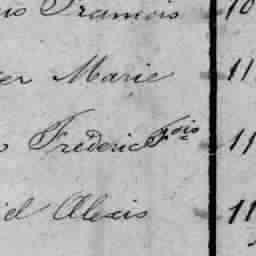 François 10
er Marie 11
Frédéric Fois 11
el Alexis 11